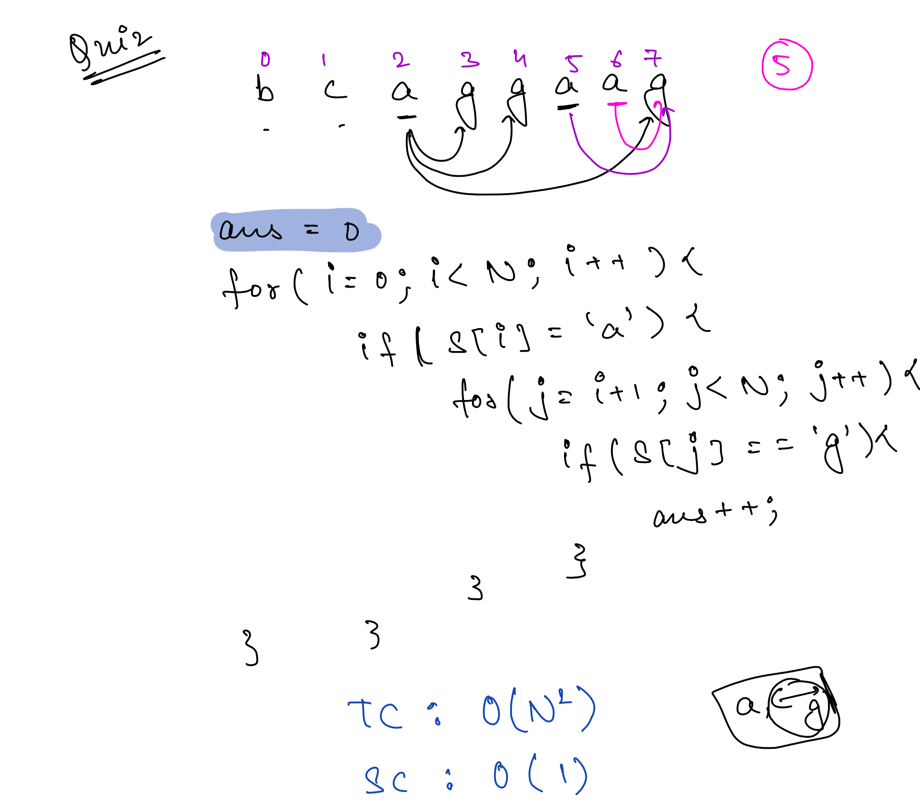 Quiz
0 1 2 3 4 5 6 7
b c a g g a a g
5
ans = 0
for( i = 0; i < N; i++ ) {
if( S[i] = 'a') {
for( j = i+1; j < N; j++ ) {
if( S[j] == 'g') {
ans++;
}
}
}
}
TC : O(N²)
SC : O(1)
a, g